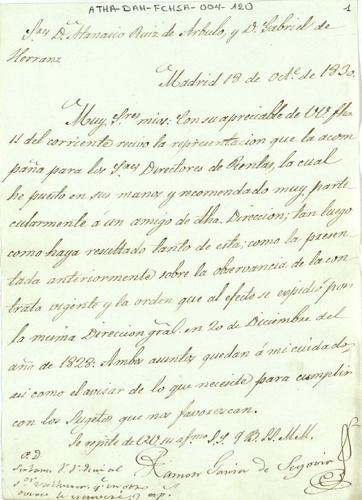 ATHA-DAH-FCHSA-004-120
1
Sres D. Atanasio Ruiz de Arbulo, y D. Gabriel de
Herranz
Madrid 18 de Octe. de 1830.
Muy Sres mios: Con su apreciable de VV. fha
11 del corriente recivo la representacion que la acom
paña para los Sres Directores de Rentas, la cual
he puesto en sus manos y recomendado muy parti
cularmente á un amigo de dha. Direccion; tan luego
como haya resultado tanto de esta, como la presen
tada anteriormente sobre la observancia de la con
trata vigente y la orden que al efecto se expidió por
la misma Direccion gral. en 20 de Diciembre del
año de 1828: Ambos asuntos quedan á mi cuidado,
asi como el avisar de lo que necesite para cumplir
con los Sugetos que nos favorescan.
Se repite de VV. su afmo S.S. q B. SS. MM.
Ramon Garcia de Segovia
P.D.